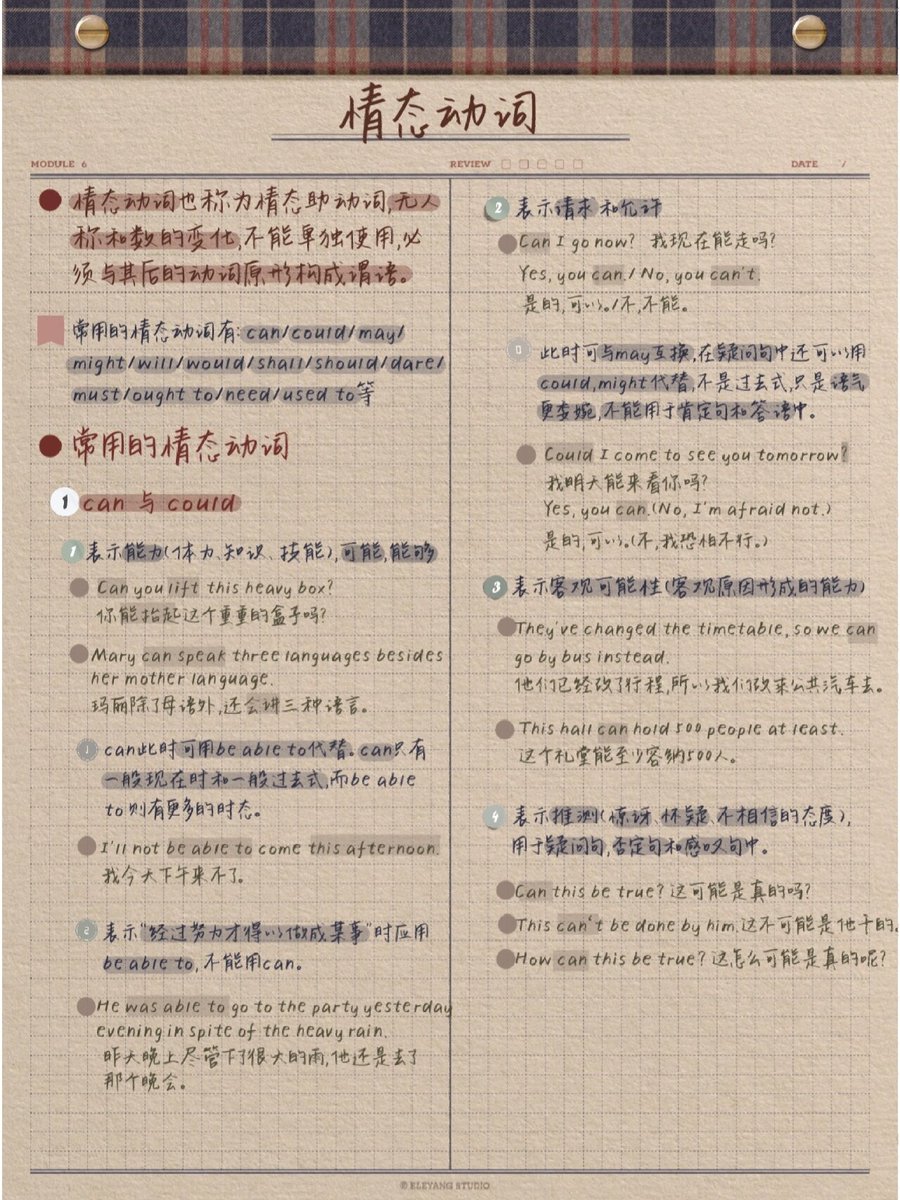 情态动词
MODULE 6
REVIEW
DATE /
情态动词也称为情态助动词,无人
称和数的变化,不能单独使用,必
须与其后的动词原形构成谓语。
常用的情态动词有:can/could/may/
might/will/would/shall/should/dare/
must/ought to/need/used to等
常用的情态动词
1 can 与 could
1 表示能力(体力、知识、技能),可能,能够
Can you lift this heavy box?
你能抬起这个重重的盒子吗?
Mary can speak three languages besides
her mother language.
玛丽除了母语外,还会讲三种语言。
1 can此时可用be able to代替。can只有
一般现在时和一般过去式,而be able
to则有更多的时态。
I'll not be able to come this afternoon.
我今天下午来不了。
2 表示“经过努力才得以做成某事”时应用
be able to,不能用can。
He was able to go to the party yesterday
evening in spite of the heavy rain.
昨天晚上尽管下了很大的雨,他还是去了
那个晚会。
2 表示请求和允许
Can I go now? 我现在能走吗?
Yes, you can./No, you can't.
是的,可以。/不,不能。
此时可与may互换,在疑问句中还可以用
could,might代替,不是过去式,只是语气
更委婉,不能用于肯定句和答语中。
Could I come to see you tomorrow?
我明天能来看你吗?
Yes, you can.(No, I'm afraid not.)
是的,可以。(不,我恐怕不行。)
3 表示客观可能性(客观原因形成的能力)
They've changed the timetable, so we can
go by bus instead.
他们已经改了行程,所以我们改来公共汽车去。
This hall can hold 500 people at least.
这个礼堂能至少容纳500人。
4 表示推测(惊讶、怀疑、不相信的态度),
用于疑问句,否定句和感叹句中。
Can this be true? 这可能是真的吗?
This can't be done by him.这不可能是他干的。
How can this be true? 这怎么可能是真的呢?
© ELEYANG STUDIO